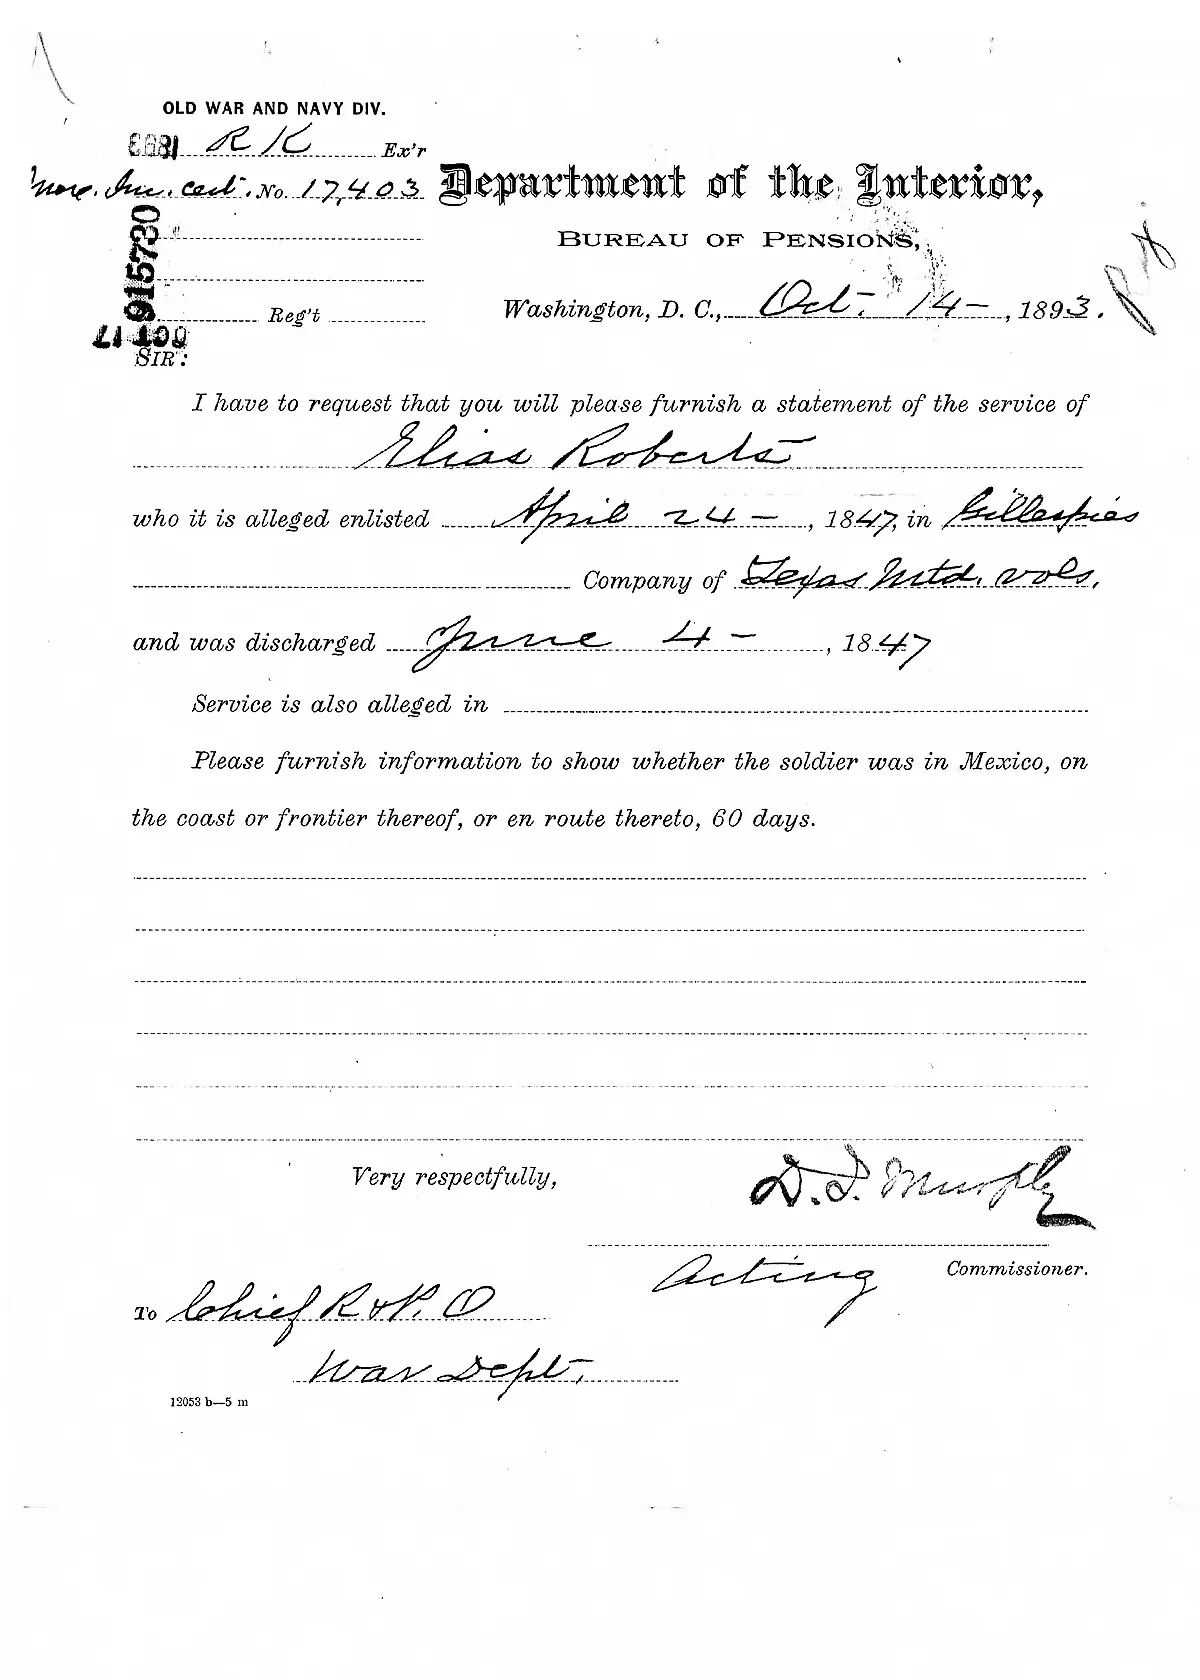 OLD WAR AND NAVY DIV.
R K Ex'r
Inc. cert. No. 17,403
Department of the Interior,
BUREAU OF PENSIONS,
915730
Reg't
Washington, D. C., Oct. 14 –, 1893.
SIR:
I have to request that you will please furnish a statement of the service of
Elias Roberts
who it is alleged enlisted April 24 –, 1847, in Gillespies
Company of Texas Mtd. vols.
and was discharged June 4 –, 1847
Service is also alleged in
Please furnish information to show whether the soldier was in Mexico, on
the coast or frontier thereof, or en route thereto, 60 days.
Very respectfully,
D. I. Murphy
Acting Commissioner.
To Chief R & P. O
War Dept.
12053 b—5 m